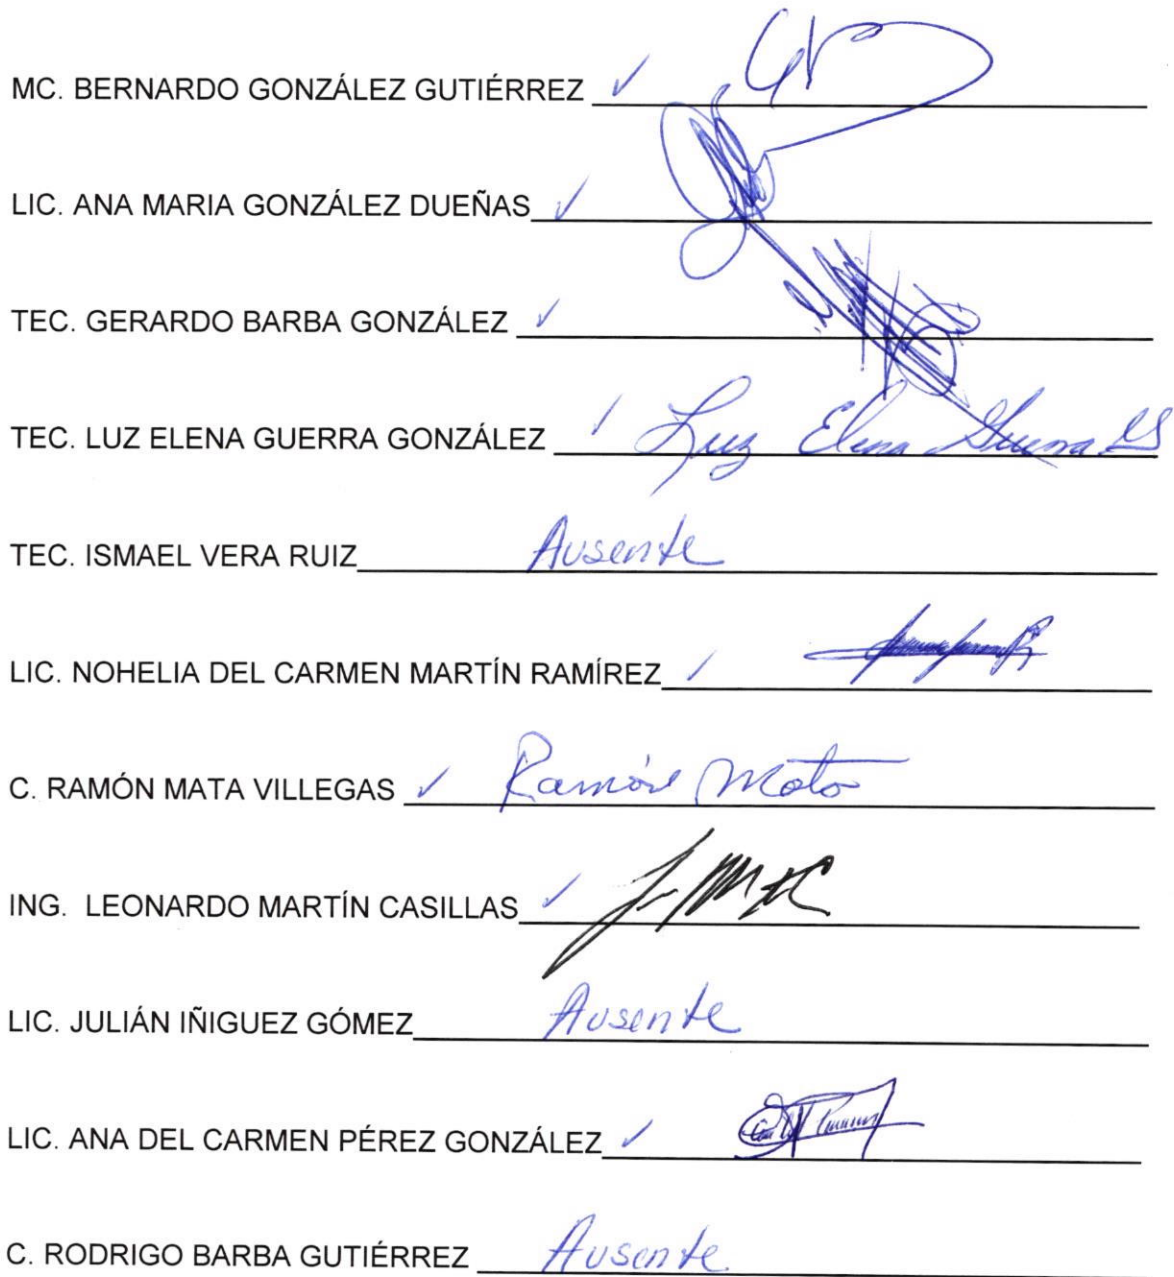 MC. BERNARDO GONZÁLEZ GUTIÉRREZ
LIC. ANA MARIA GONZÁLEZ DUEÑAS
TEC. GERARDO BARBA GONZÁLEZ
TEC. LUZ ELENA GUERRA GONZÁLEZ Luz Elena Guerra G
TEC. ISMAEL VERA RUIZ Ausente
LIC. NOHELIA DEL CARMEN MARTÍN RAMÍREZ
C. RAMÓN MATA VILLEGAS Ramón Mata
ING. LEONARDO MARTÍN CASILLAS
LIC. JULIÁN IÑIGUEZ GÓMEZ Ausente
LIC. ANA DEL CARMEN PÉREZ GONZÁLEZ
C. RODRIGO BARBA GUTIÉRREZ Ausente